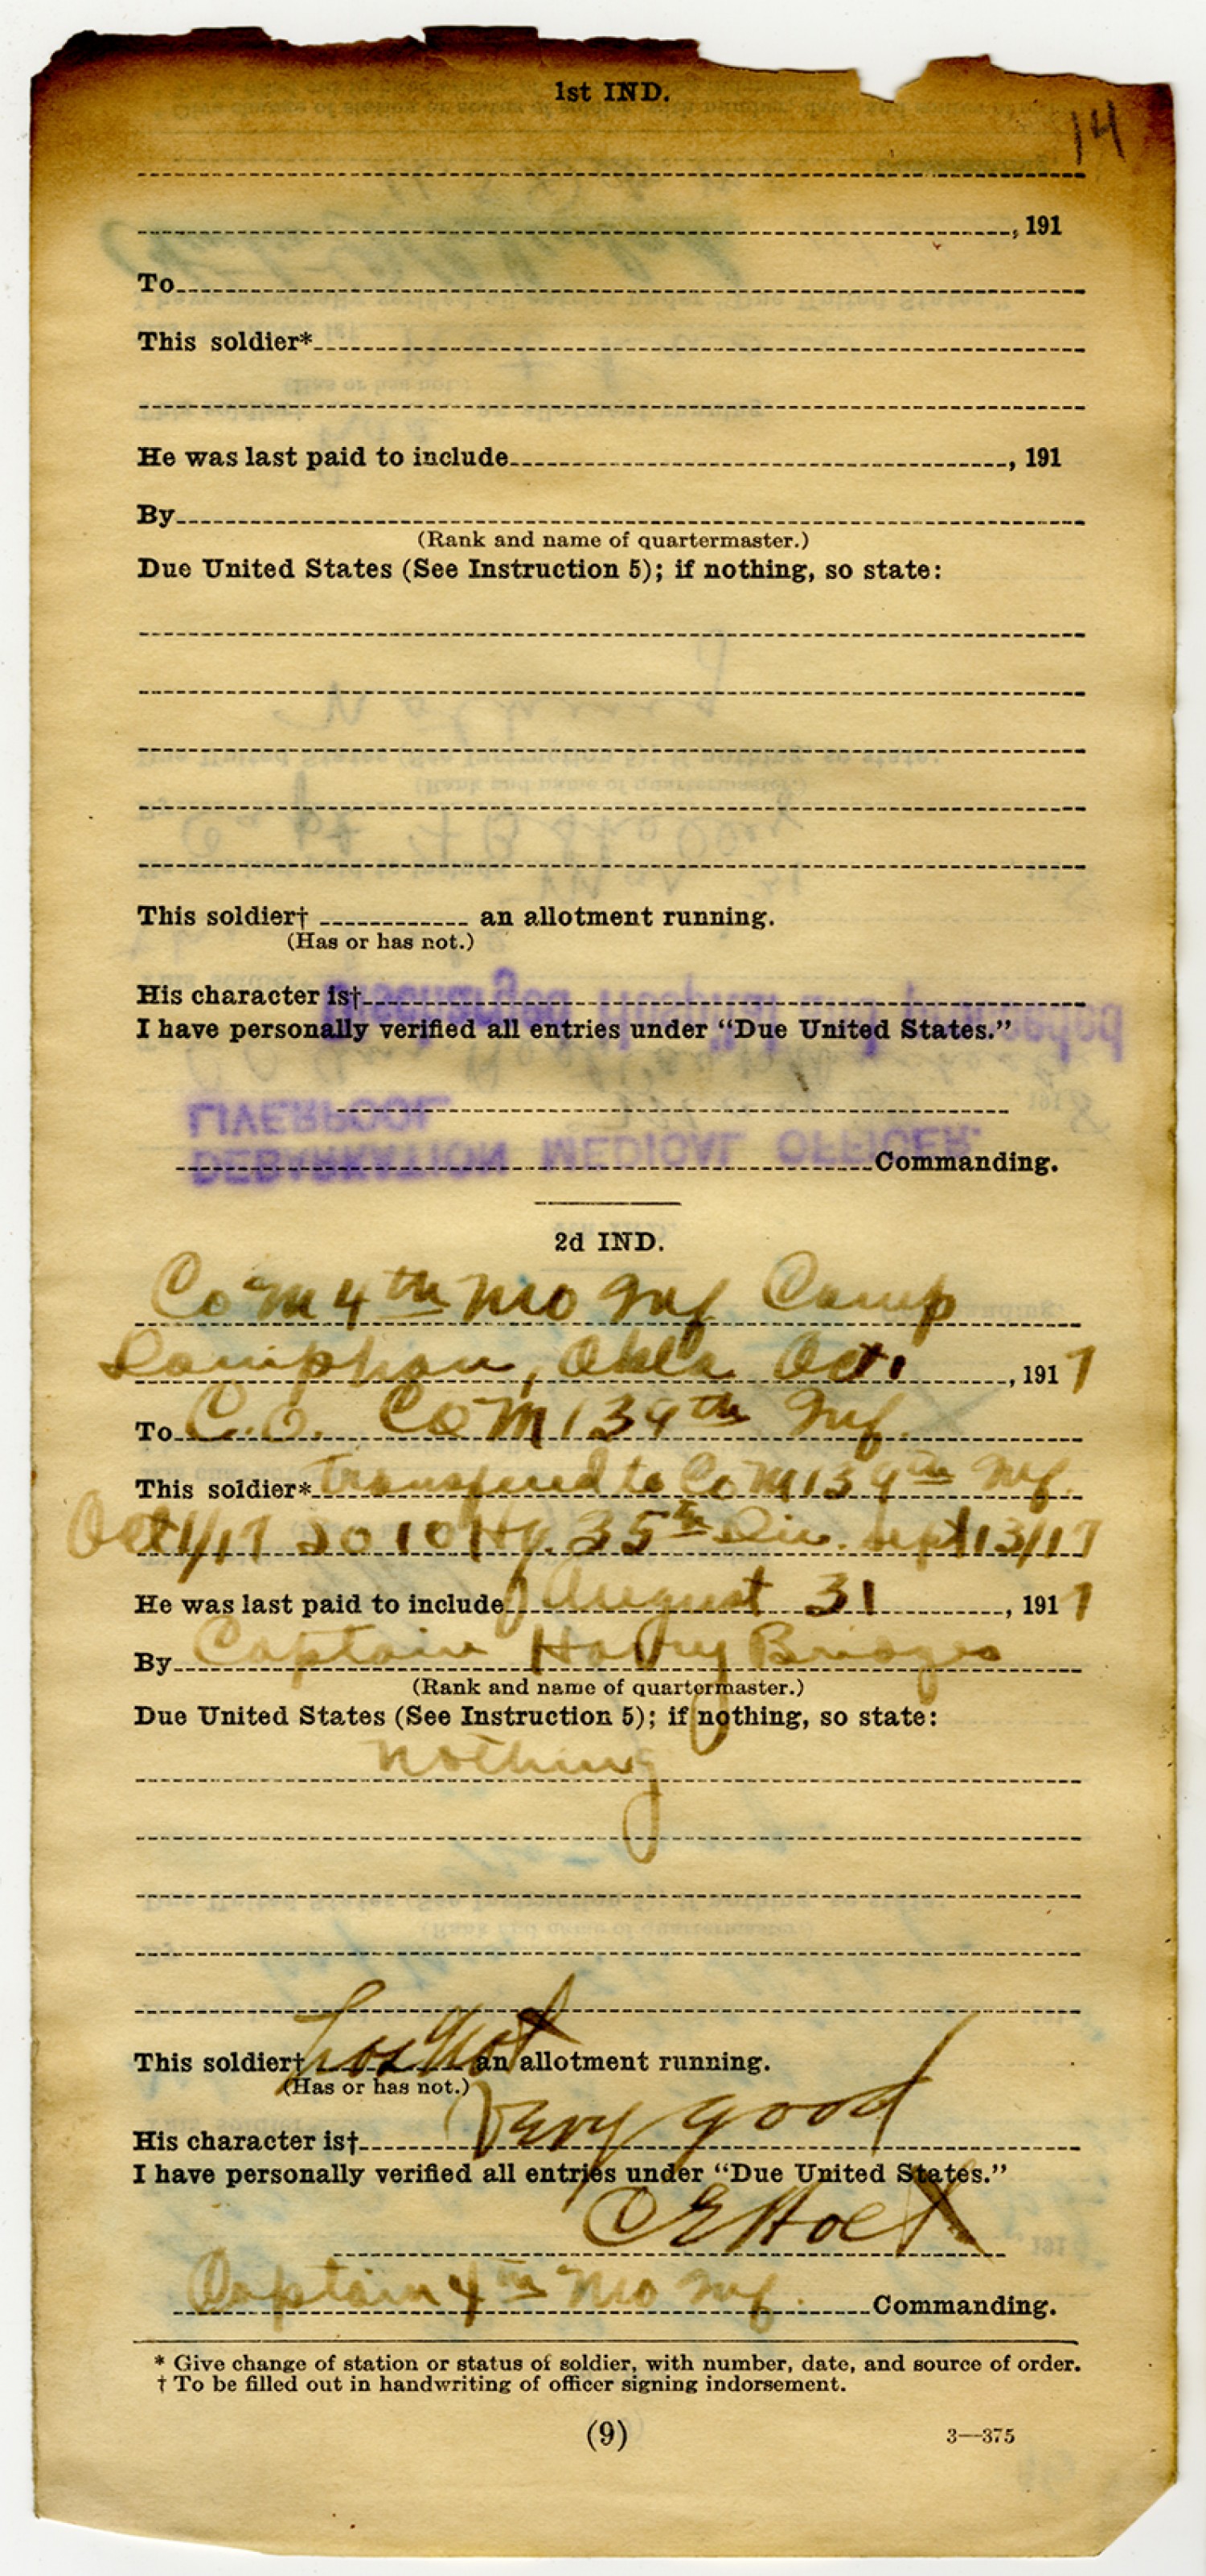 1st IND.
14
, 191
To
This soldier*
He was last paid to include , 191
By
(Rank and name of quartermaster.)
Due United States (See Instruction 5); if nothing, so state:
This soldier† an allotment running.
(Has or has not.)
His character is†
I have personally verified all entries under “Due United States.”
Commanding.
2d IND.
Co M 4th Mo Inf Camp
Doniphan, Okla Oct 1 , 1917
To C.O. Co M 139th Inf.
This soldier* transfered to Co M 139th Inf.
Oct 1/17 SO 10 Hq. 35th Div. Sept 13/17
He was last paid to include August 31 , 1917
By Captain Harry Bridges
(Rank and name of quartermaster.)
Due United States (See Instruction 5); if nothing, so state:
nothing
This soldier† has not an allotment running.
(Has or has not.)
His character is† Very good
I have personally verified all entries under “Due United States.”
C E Holt
Captain 4th Mo Inf. Commanding.
* Give change of station or status of soldier, with number, date, and source of order.
† To be filled out in handwriting of officer signing indorsement.
(9)
3—375